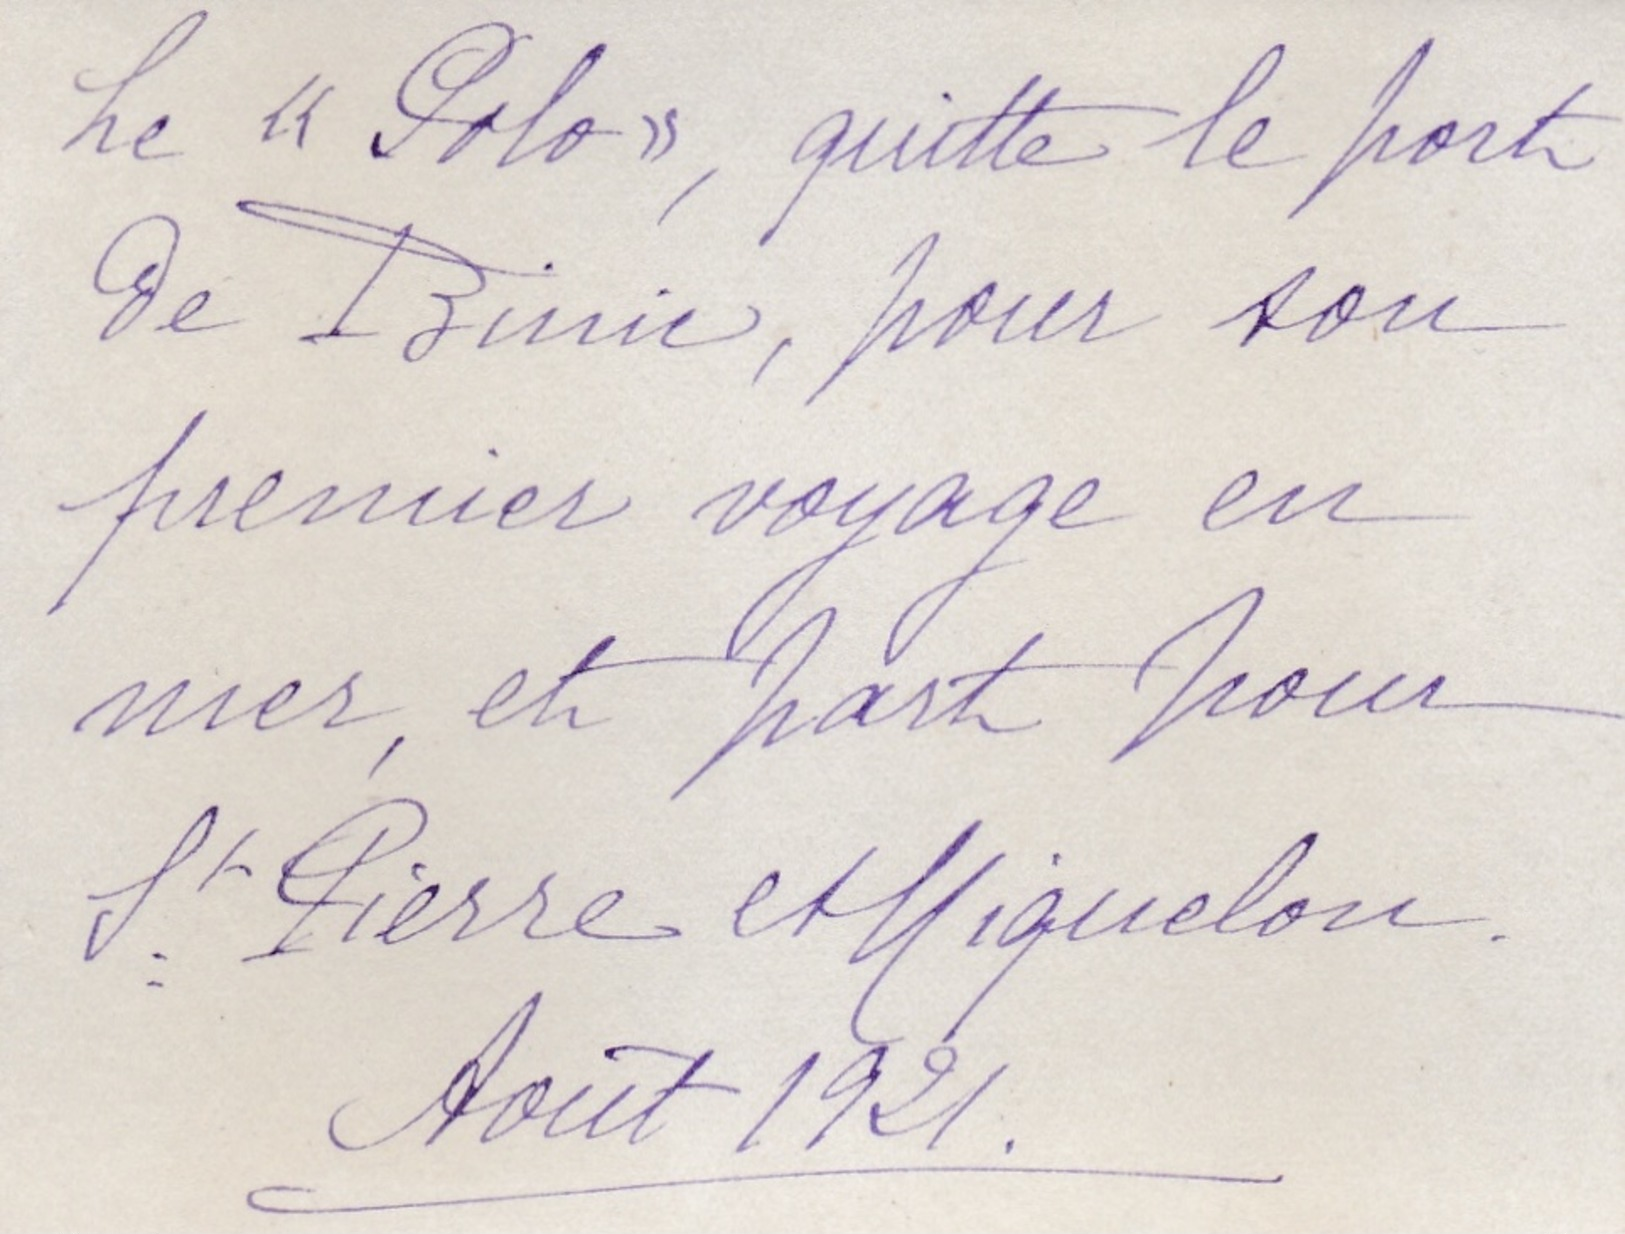 Le « Polo », quitte le port
de Binic, pour son
premier voyage en
mer, et part pour
St Pierre et Miquelon.
Août 1921.